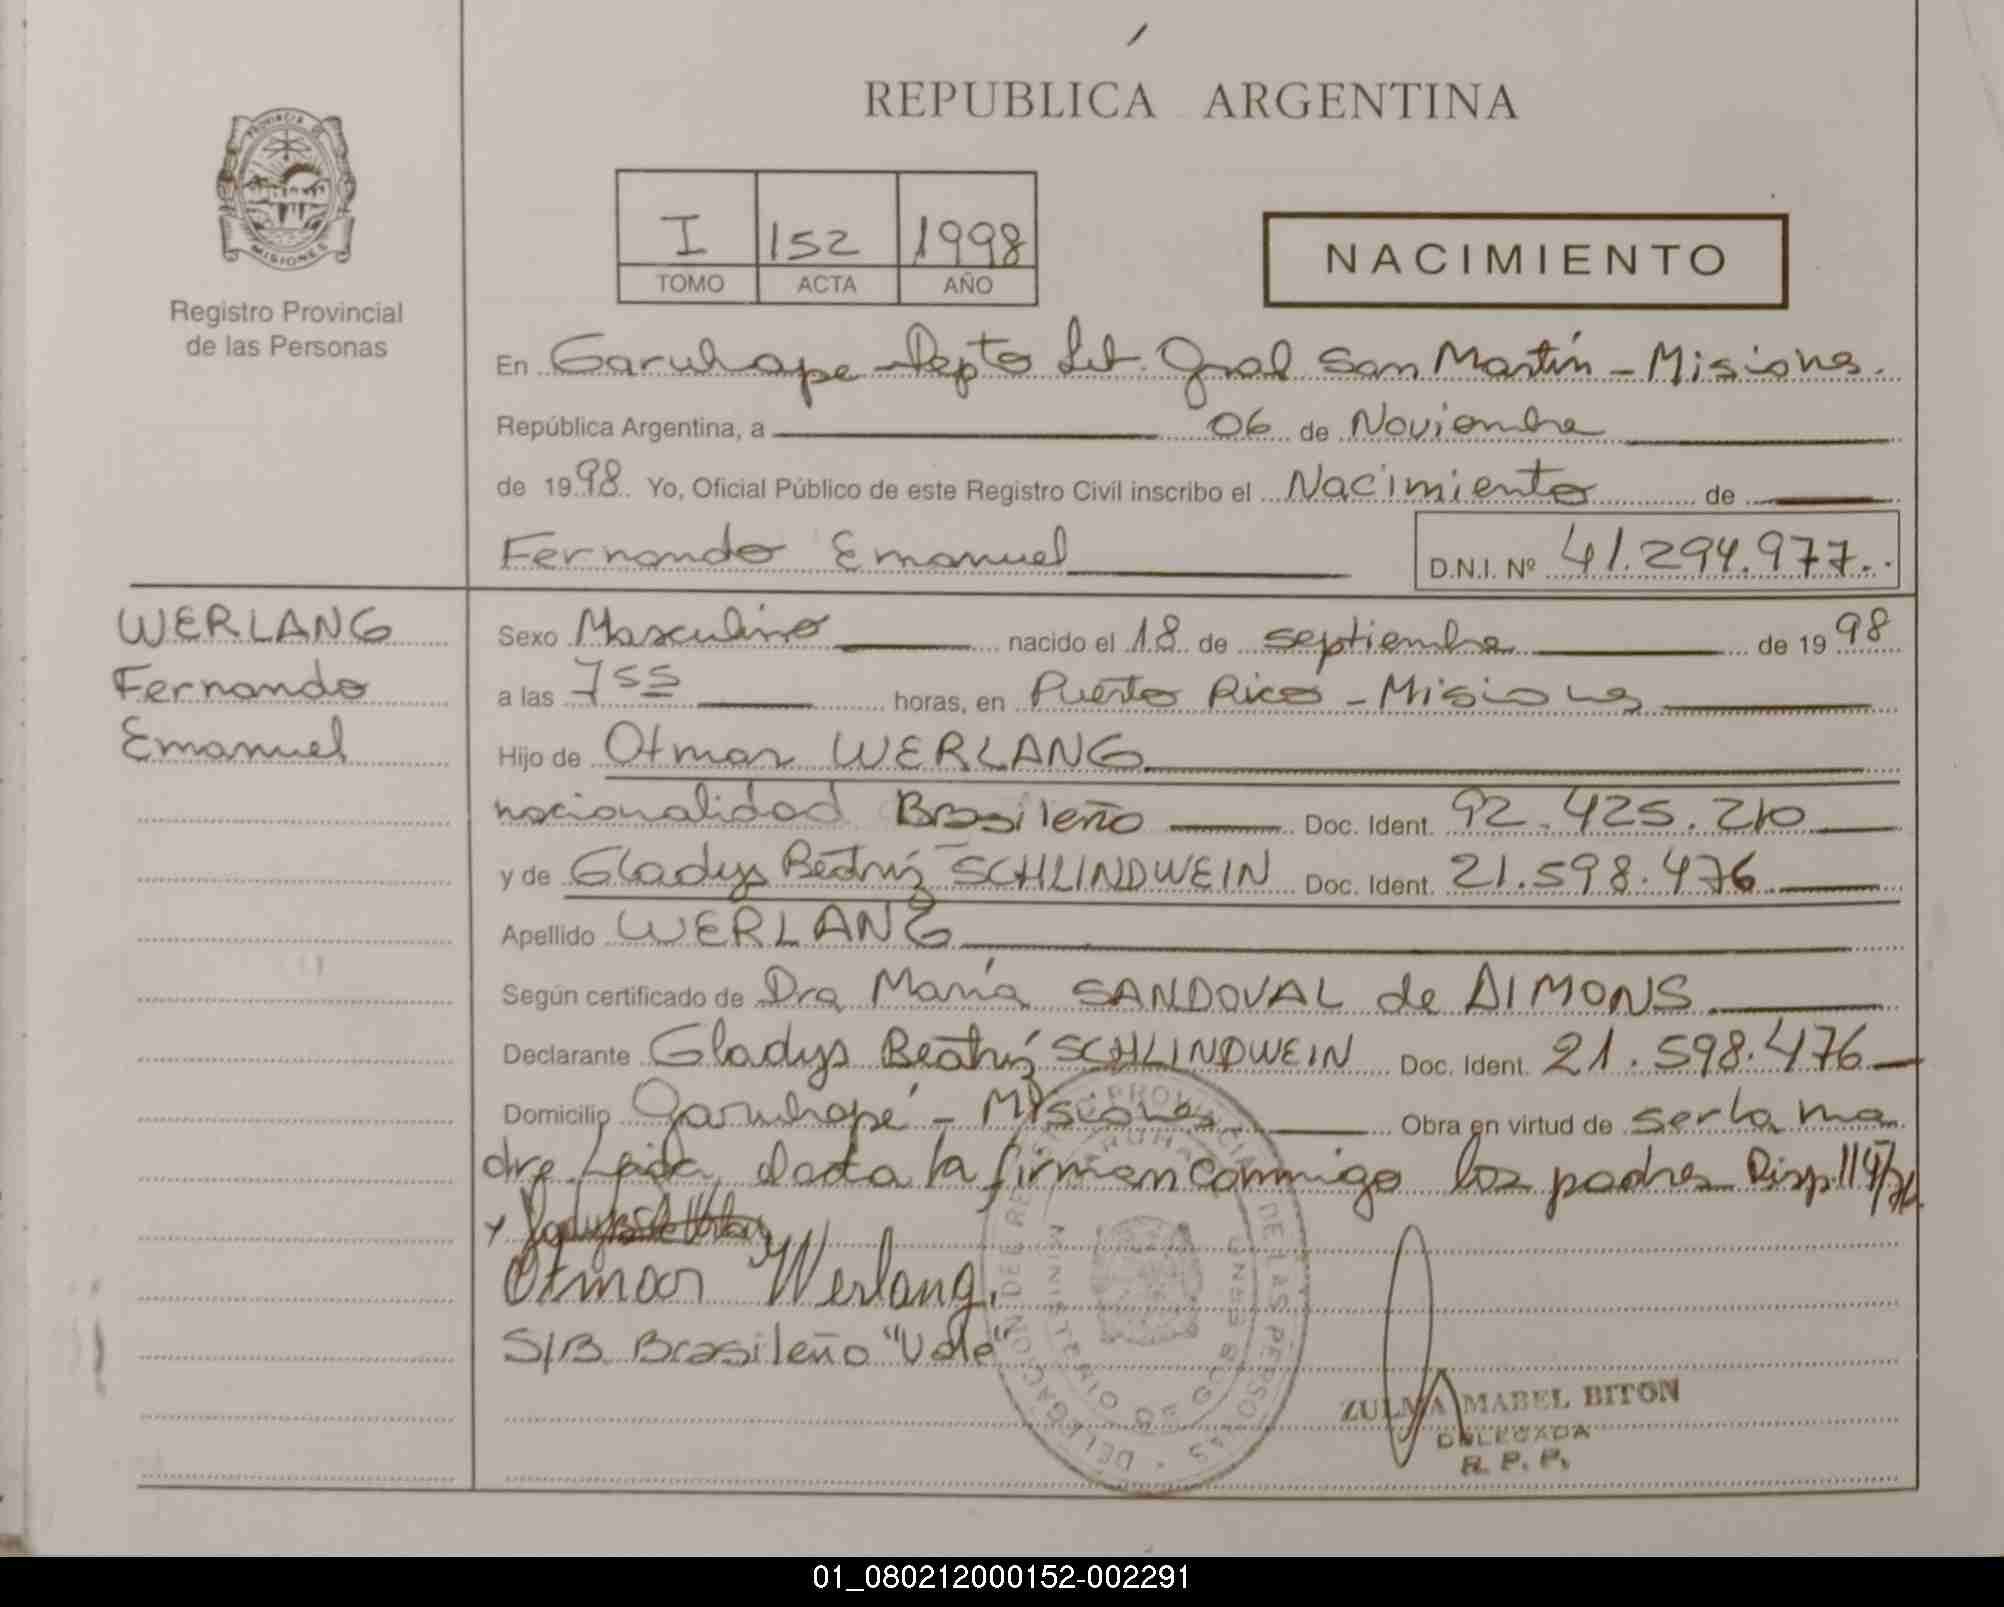 REPUBLICA ARGENTINA
PROVINCIA DE
MISIONES
Registro Provincial
de las Personas
I 152 1998
TOMO ACTA AÑO
NACIMIENTO
En Garuhape - Depto Lib. Gral San Martín - Misiones.
República Argentina, a 06 de Noviembre
de 1998. Yo, Oficial Público de este Registro Civil inscribo el Nacimiento de
Fernando Emanuel D.N.I. Nº 41.294.977.
WERLANG
Fernando
Emanuel
Sexo Masculino nacido el 18 de septiembre de 1998
a las 7 55 horas, en Puerto Rico - Misiones
Hijo de Otmar WERLANG
nacionalidad Brasileño Doc. Ident. 92.425.210
y de Gladys Beatriz SCHLINDWEIN Doc. Ident. 21.598.476
Apellido WERLANG
Según certificado de Dra María SANDOVAL de DIMONS
Declarante Gladys Beatriz SCHLINDWEIN Doc. Ident. 21.598.476
Domicilio Garuhapé - Misiones Obra en virtud de ser la ma
dre. Leída el acta la firman conmigo los padres Disp.
Otmar Werlang.
S/B Brasileño "Vale"
ZULMA MABEL BITON
DELEGADA
R. P. P.
01_080212000152-002291